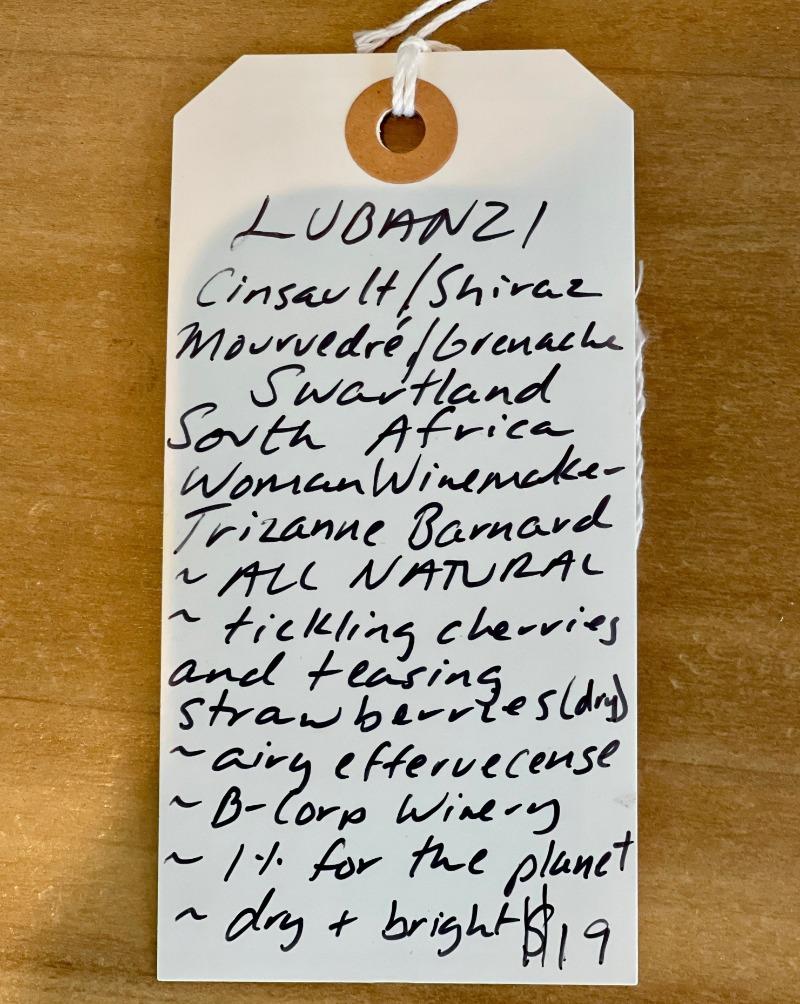 LUBANZI
Cinsault/Shiraz
Mourvedré/Grenache
Swartland
South Africa
Woman Winemaker
Trizanne Barnard
~ ALL NATURAL
~ tickling cherries
and teasing
strawberries (dry)
~ airy effervecense
~ B-Corp Winery
~ 1% for the planet
~ dry + bright $19